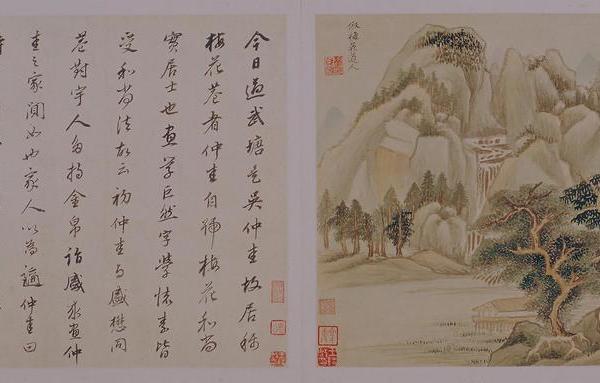 倣梅花道人
今日過武塘是吳仲圭故居稱
梅花菴者仲圭自號梅花和尚
實居士也畫學巨然字學懷素皆
受和尚法故云初仲圭與盛懋同
巷對宇人多持金帛詣盛求畫仲
圭之家闃如也家人以為誚仲圭曰